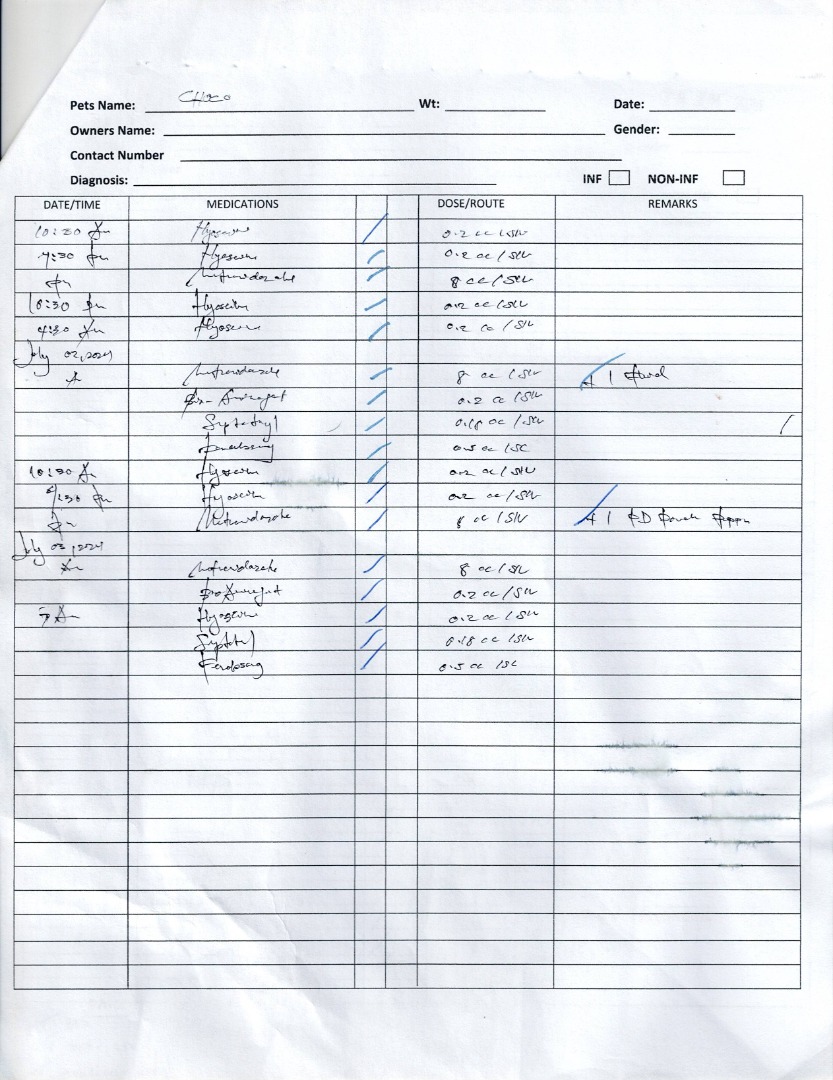 Pets Name: Choco Wt: Date:
Owners Name: Gender:
Contact Number
Diagnosis: INF NON-INF
DATE/TIME MEDICATIONS DOSE/ROUTE REMARKS
10:30 Hyoscine 0.2 cc / SIV
7:30 pm Hyoscine 0.2 cc / SIV
pm Metronidazole 8 cc / SIV
10:30 pm Hyoscine 0.2 cc / SIV
4:30 Hyoscine 0.2 cc / SIV
July 02, 2024
Metronidazole 8 cc / SIV
0.2 cc / SIV
0.18 cc / SIV
0.5 cc / SC
10:30 Hyoscine 0.2 cc / SIV
7:30 pm Hyoscine 0.2 cc / SIV
pm Metronidazole 8 cc / SIV
July 03, 2024
Metronidazole 8 cc / SIV
0.2 cc / SIV
Hyoscine 0.2 cc / SIV
0.18 cc / SIV
0.5 cc / SC